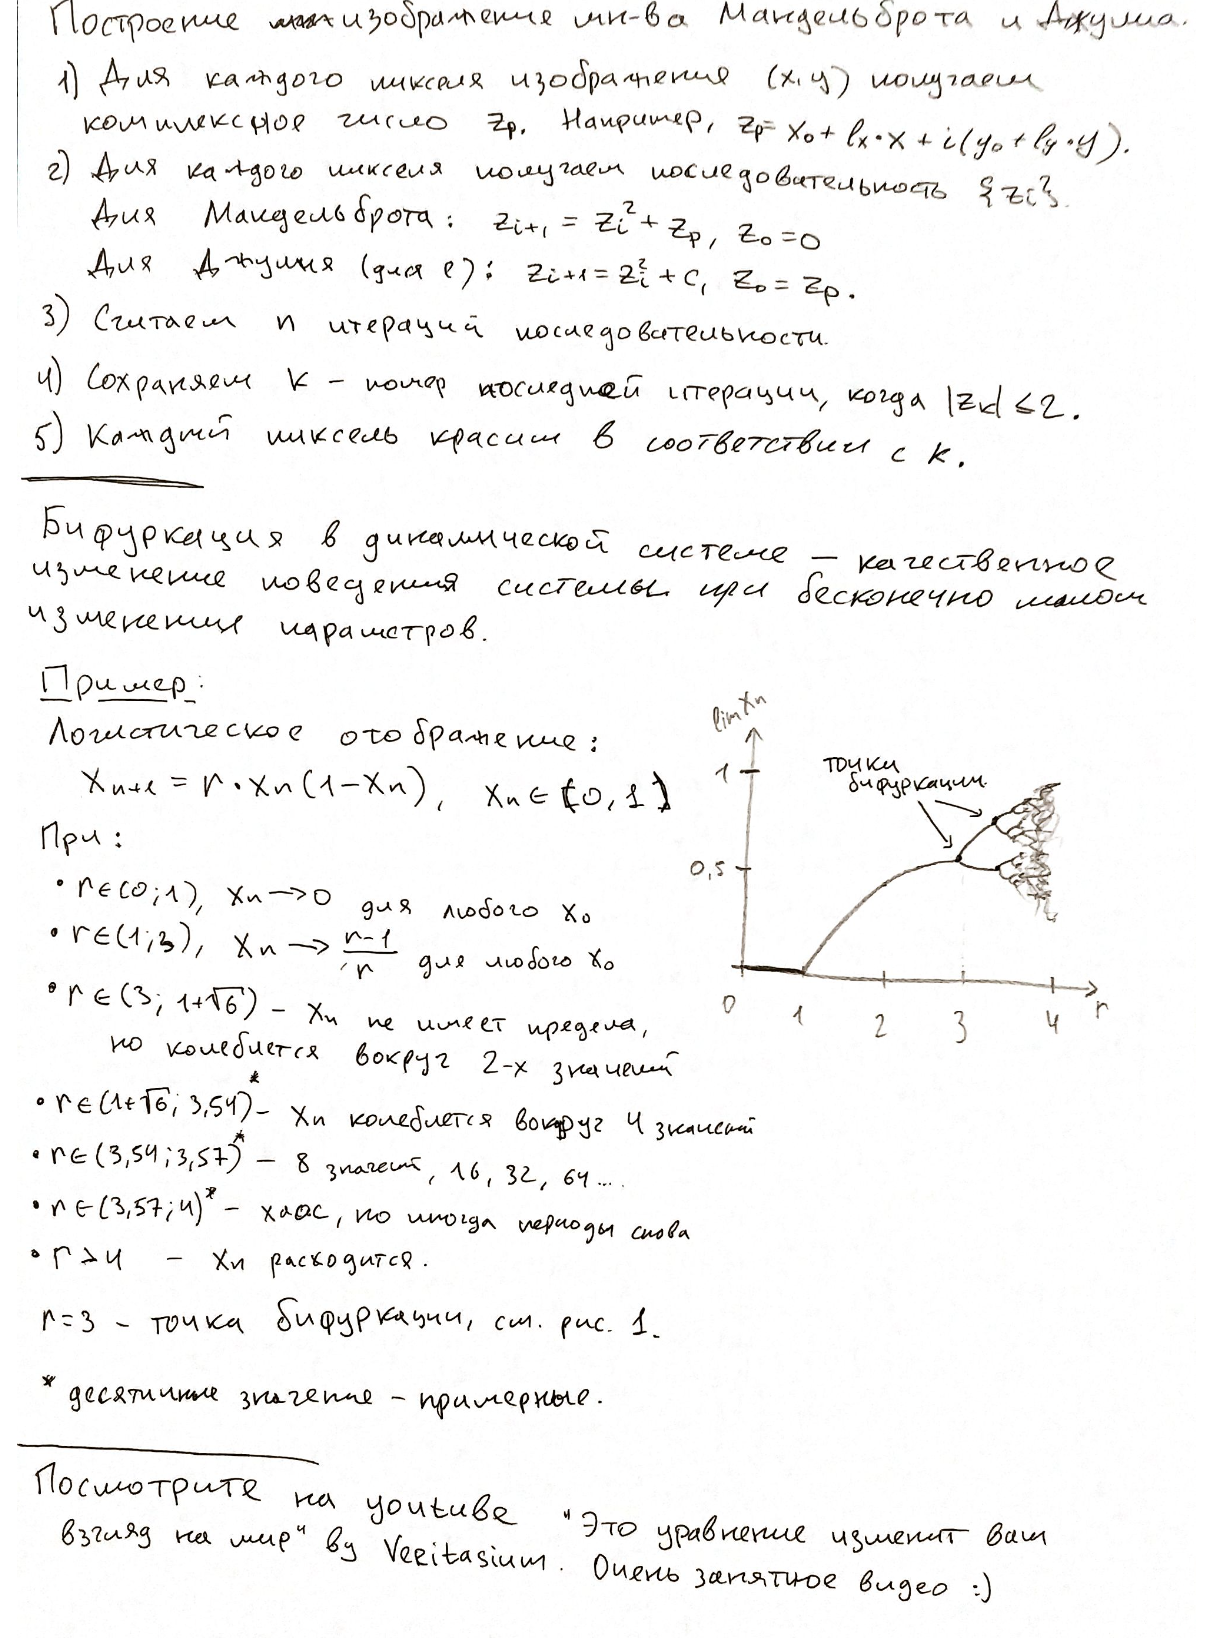 Построение изображение мн-ва Мандельброта и Джулиа.
1) Для каждого пикселя изображения (x, y) получаем
комплексное число Zp. Например, Zp = x₀ + lx·x + i(y₀ + ly·y).
2) Для каждого пикселя получаем последовательность {Zi}.
Для Мандельброта: Zi+1 = Zi² + Zp, Z₀ = 0
Для Джулиа (для c): Zi+1 = Zi² + c, Z₀ = Zp.
3) Считаем n итераций последовательности.
4) Сохраняем k – номер последней итерации, когда |Zk| ≤ 2.
5) Каждый пиксель красим в соответствии с k.
Бифуркация в динамической системе – качественное
изменение поведения системы при бесконечно малом
изменении параметров.
Пример:
Логистическое отображение:
Xn+1 = r·Xn(1–Xn), Xn ∈ [0, 1]
При:
• r∈(0;1), Xn → 0 для любого X₀
• r∈(1;3), Xn → (r–1)/r для любого X₀
• r∈(3; 1+√6) – Xn не имеет предела,
но колеблется вокруг 2-х значений
• r∈(1+√6; 3,54)* – Xn колеблется вокруг 4 значений
• r∈(3,54; 3,57)* – 8 значений, 16, 32, 64...
• r∈(3,57; 4)* – хаос, но иногда периоды снова
• r>4 – Xn расходится.
r=3 – точка бифуркации, см. рис. 1.
* десятичные значение – примерные.
lim Xn
1
точки
бифуркации
0,5
0 1 2 3 4 r
Посмотрите на youtube "Это уравнение изменит ваш
взгляд на мир" by Veritasium. Очень занятное видео :)